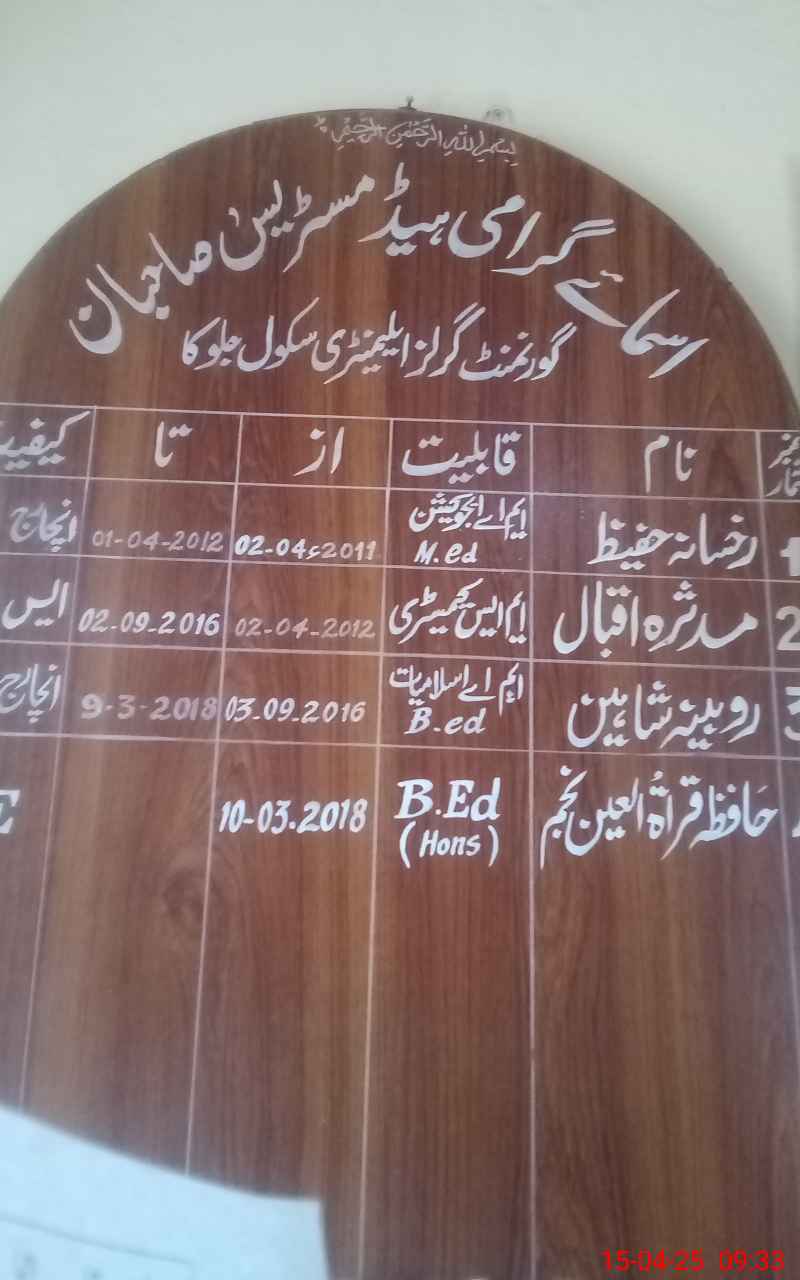 بسم اللہ الرحمن الرحیم
اسمائے گرامی ہیڈ مسٹریس صاحبان
گورنمنٹ گرلز ایلیمنٹری سکول جلوکا
نمبر شمار نام قابلیت از تا کیفیت
1 رخسانہ حفیظ ایم اے ایجوکیشن M.ed 02-04ء2011 01-04-2012 انچارج
2 مدثرہ اقبال ایم ایس کیمسٹری 02-04-2012 02-09-2016 ایس
3 روبینہ شاہین ایم اے اسلامیات B.ed 03-09-2016 9-3-2018 انچارج
حافظہ قراۃ العین نجم B.Ed (Hons) 10-03.2018 E
15-04-25 09:33